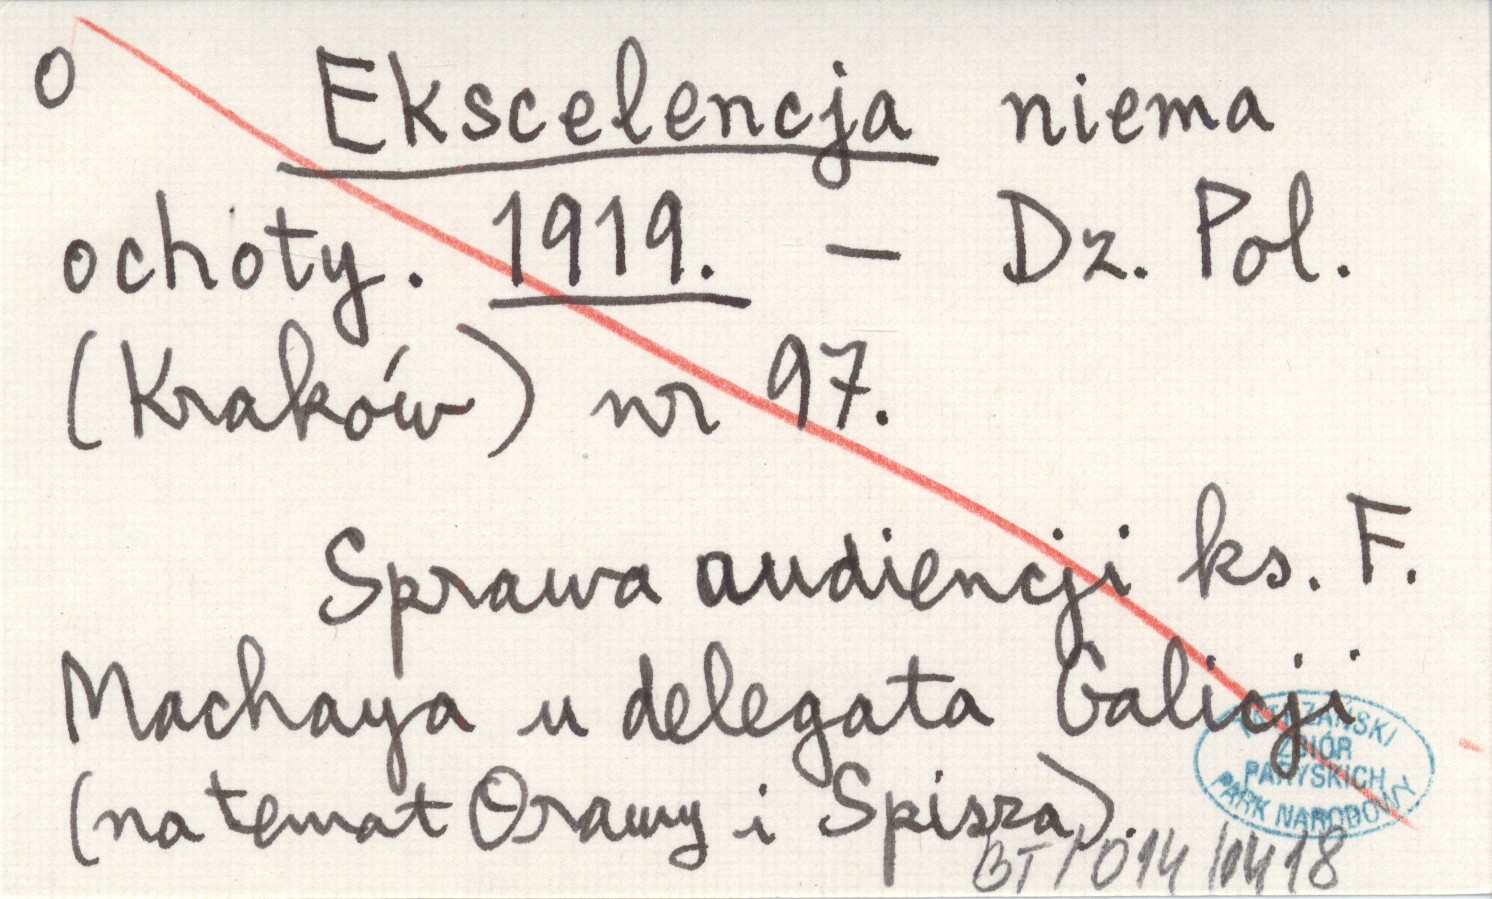 O Ekscelencja niema
ochoty. 1919. — Dz. Pol.
(Kraków) nr 97.
Sprawa audiencji ks. F.
Machaya u delegata Galicji
(na temat Orawy i Spisza).
TATRZAŃSKI
ZBIÓR
PARYSKICH
PARK NARODOWY
BT/014/10418